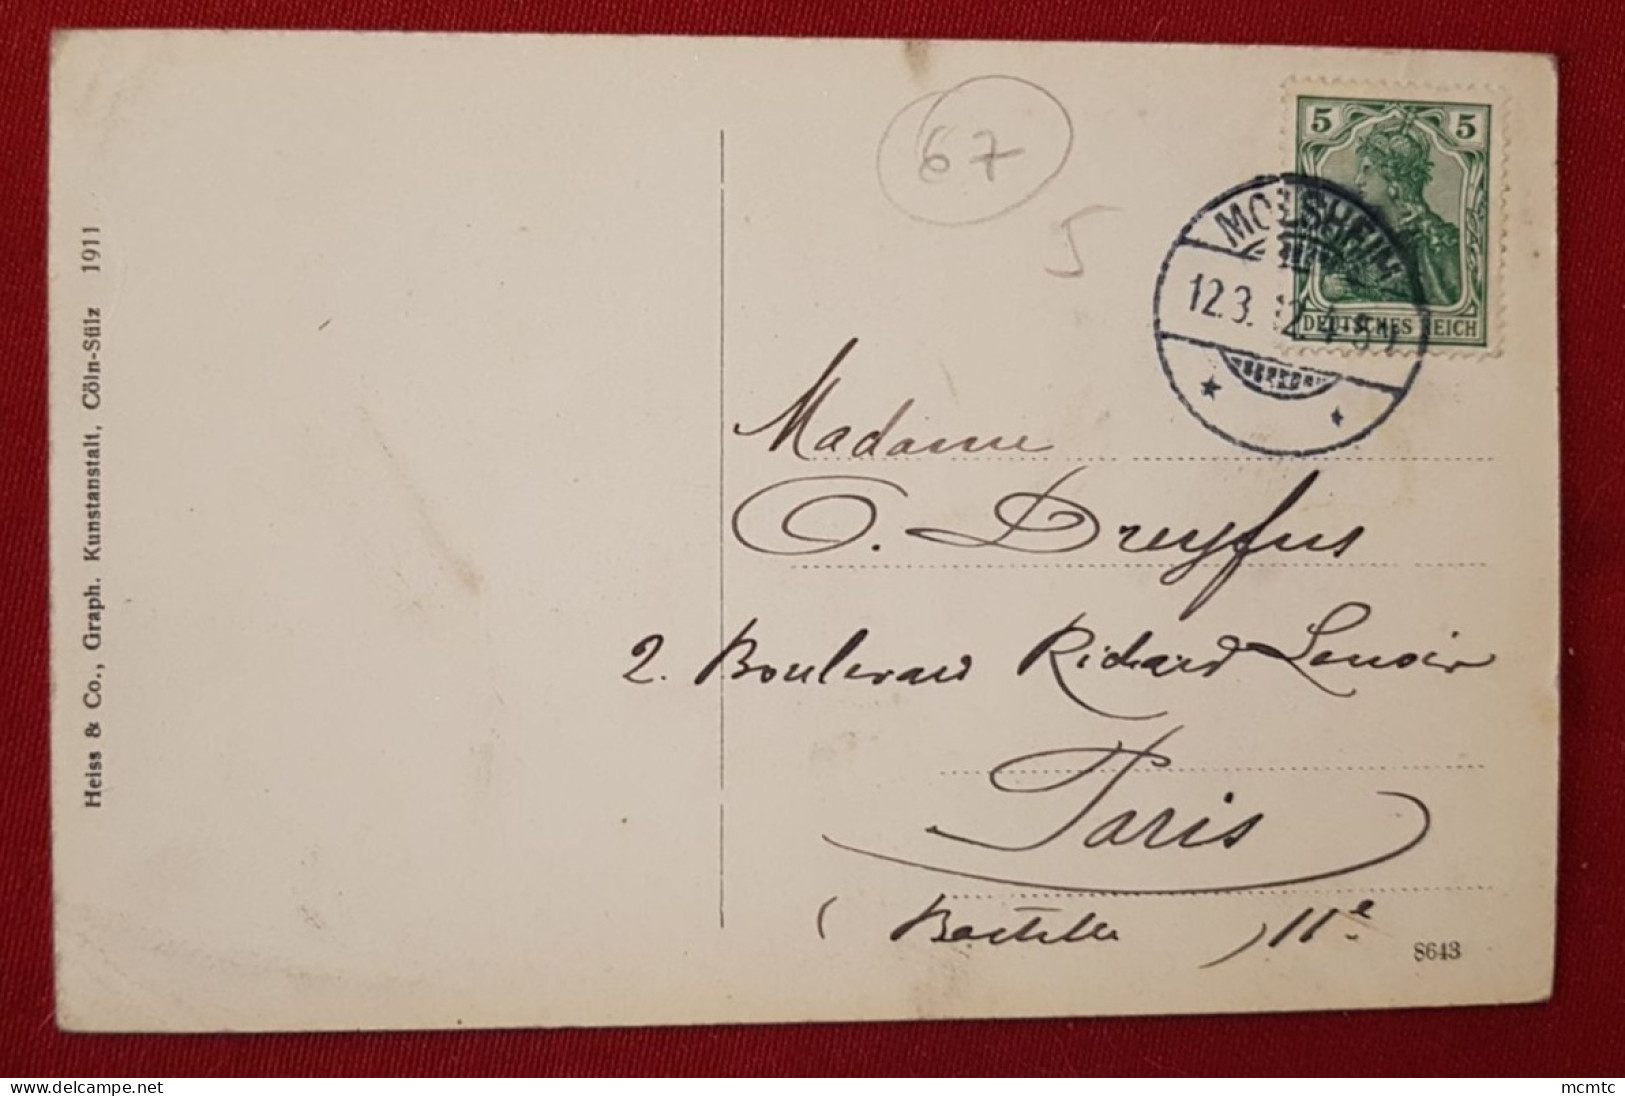 Heiss & Co., Graph. Kunstanstalt, Cöln-Sülz 1911
67
5
5 5
DEUTSCHES REICH
MOLSHEIM
12.3.12. 4-5
Madame
O. Dreyfus
2. Boulevard Richard Lenoir
Paris
(Bastille) 11e
8643
mcmtc